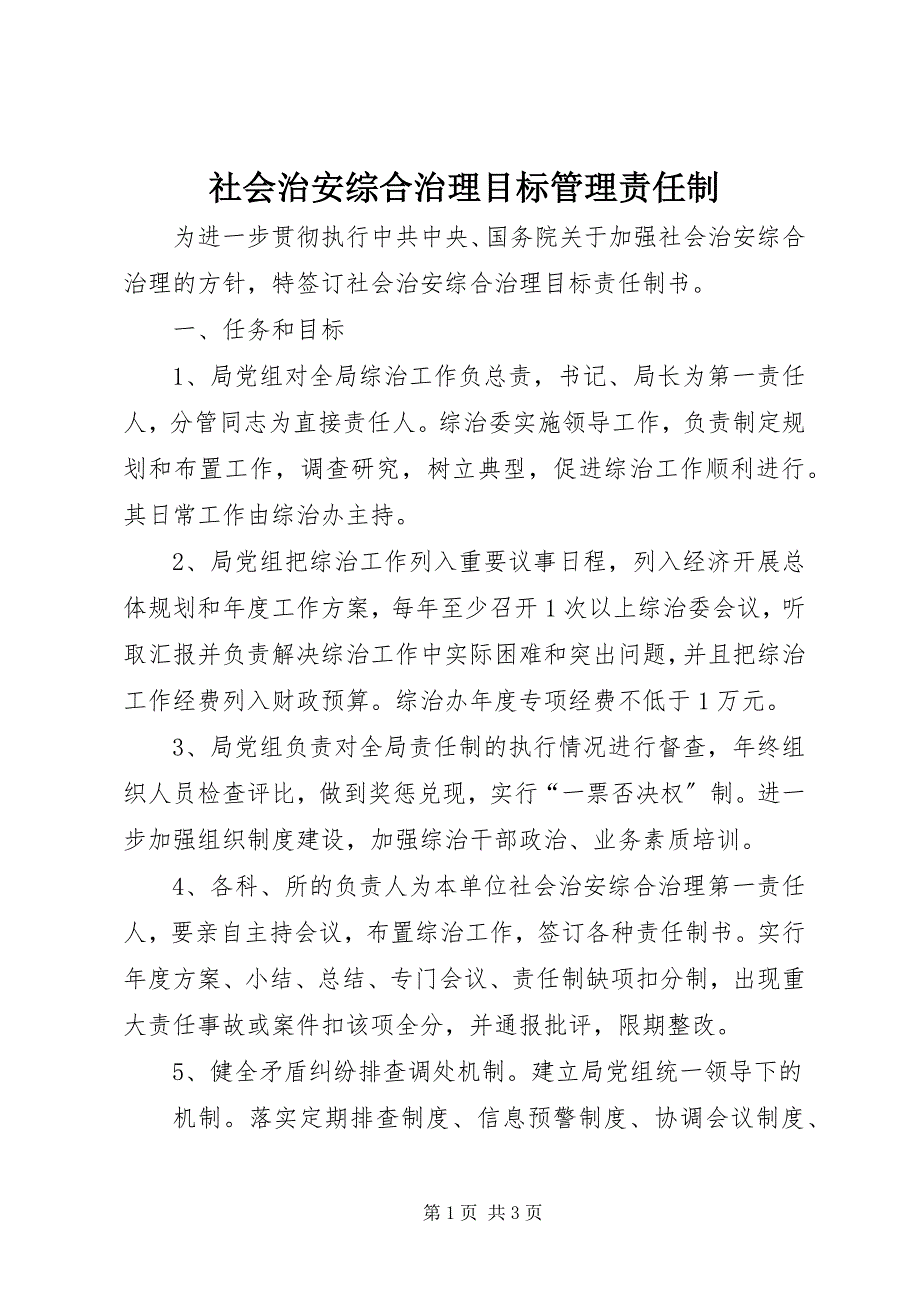 社会治安综合治理目标管理责任制
为进一步贯彻执行中共中央、国务院关于加强社会治安综合
治理的方针，特签订社会治安综合治理目标责任制书。
一、任务和目标
1、局党组对全局综治工作负总责，书记、局长为第一责任
人，分管同志为直接责任人。综治委实施领导工作，负责制定规
划和布置工作，调查研究，树立典型，促进综治工作顺利进行。
其日常工作由综治办主持。
2、局党组把综治工作列入重要议事日程，列入经济开展总
体规划和年度工作方案，每年至少召开1次以上综治委会议，听
取汇报并负责解决综治工作中实际困难和突出问题，并且把综治
工作经费列入财政预算。综治办年度专项经费不低于1万元。
3、局党组负责对全局责任制的执行情况进行督查，年终组
织人员检查评比，做到奖惩兑现，实行“一票否决权〞制。进一
步加强组织制度建设，加强综治干部政治、业务素质培训。
4、各科、所的负责人为本单位社会治安综合治理第一责任
人，要亲自主持会议，布置综治工作，签订各种责任制书。实行
年度方案、小结、总结、专门会议、责任制缺项扣分制，出现重
大责任事故或案件扣该项全分，并通报批评，限期整改。
5、健全矛盾纠纷排查调处机制。建立局党组统一领导下的
机制。落实定期排查制度、信息预警制度、协调会议制度、
第1页 共3页